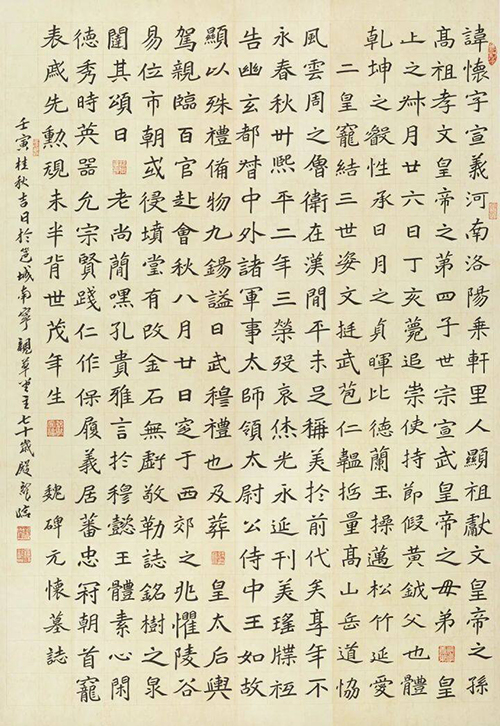 諱懷字宣義河南洛陽乗軒里人顯祖獻文皇帝之孫
髙祖孝文皇帝之第四子世宗宣武皇帝之毋弟 皇
上之叔月廿六日丁亥薨追崇使持節假黄鉞父也體
乹坤之叡性承日月之貞暉比德蘭玉操邁松竹延愛
二皇寵結三世姿文挺武苞仁韞哲量髙山岳道協
風雲周之魯衛在漢閒平未足稱美扵前代矣享年不
永春秋卅熙平二年三榮殁哀休光永延刊美瑤牒
告幽玄都督中外諸軍事太師領太尉公侍中王如故
顯以殊禮備物九錫謚曰武穆禮也及葬 皇太后輿
駕親臨百官赴會秋八月廿日窆于西郊之兆懼陵谷
易位市朝或侵墳堂有改金石無虧敬勒誌銘樹之泉
闥其頌曰 老尚蘭嘿孔貴雅言扵穆懿王體素心閑
德秀時英器允宗賢踐仁作保履義居蕃忠冠朝首寵
表戚先勲覌未半背世茂年生 魏碑元懷墓誌
壬寅桂秋吉日扵邕城南寧草堂主七十歲臨